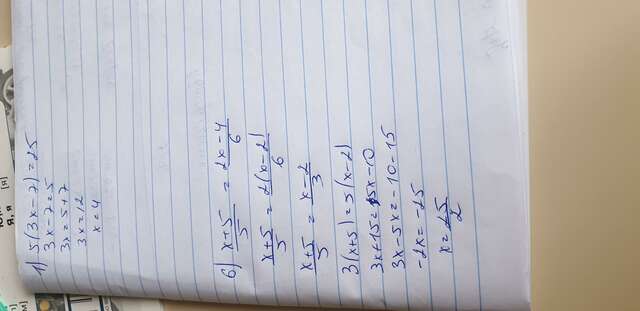 1) 5(3x-7)=25
3x-7=5
3x=5+7
3x=12
x=4
6) x+5/5 = 2x-4/6
x+5/5 = 2(x-2)/6
x+5/5 = x-2/3
3(x+5)=5(x-2)
3x+15=5x-10
3x-5x=-10-15
-2x=-25
x=25/2